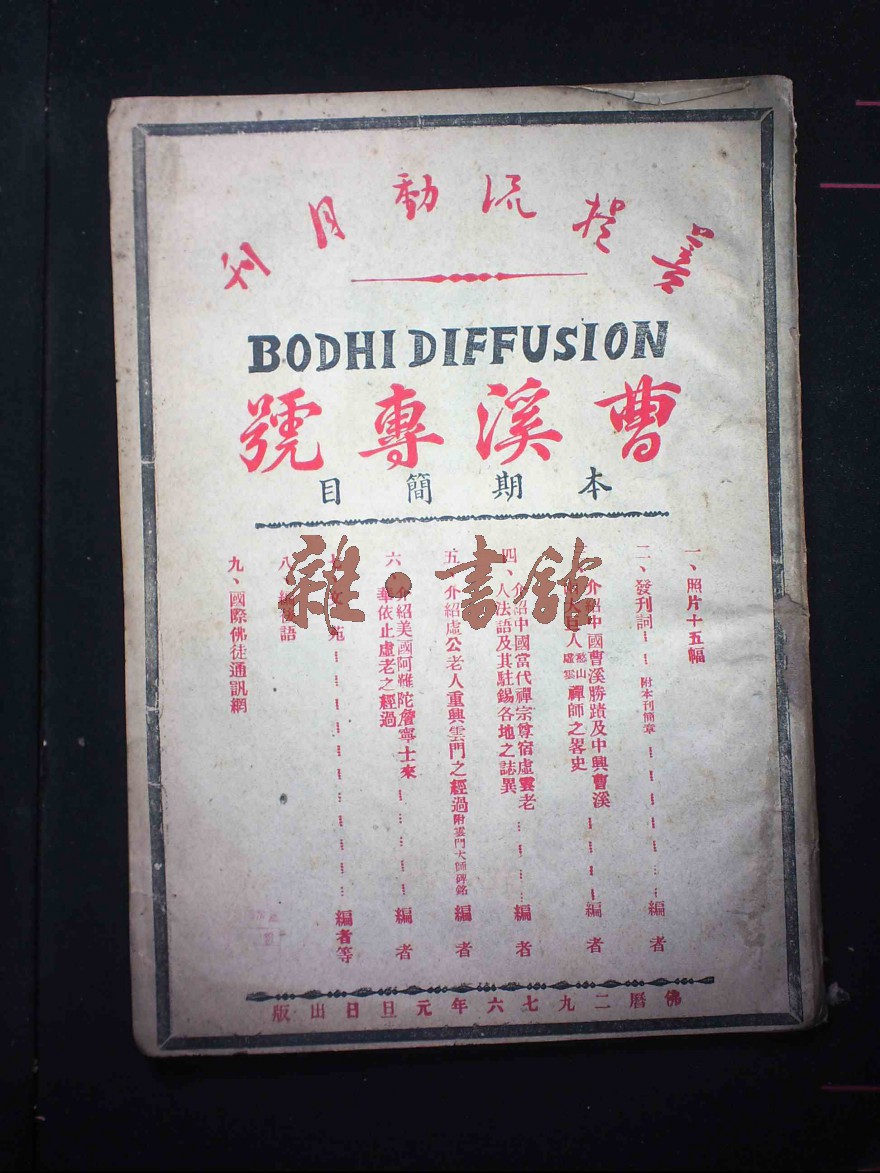 菩提流動月刊
BODHI DIFFUSION
曹溪專號
本期簡目
一、照片十五幅
二、發刊詞 附本刊簡章 編者
介紹中國曹溪勝蹟及中興曹溪
大 人 憨山 虛雲 禪師之畧史 編者
四、介紹中國當代禪宗尊宿虛雲老
人法語及其駐錫各地之誌異 編者
五、介紹虛公老人重興雲門之經過 附雲門大師碑銘 編者
六、介紹美國阿難陀詹寧士來
華依止虛老之經過 編者
七、文苑 編者等
八、編後語
九、國際佛徒通訊網
佛曆二九七六年元旦日出版
雜·書館